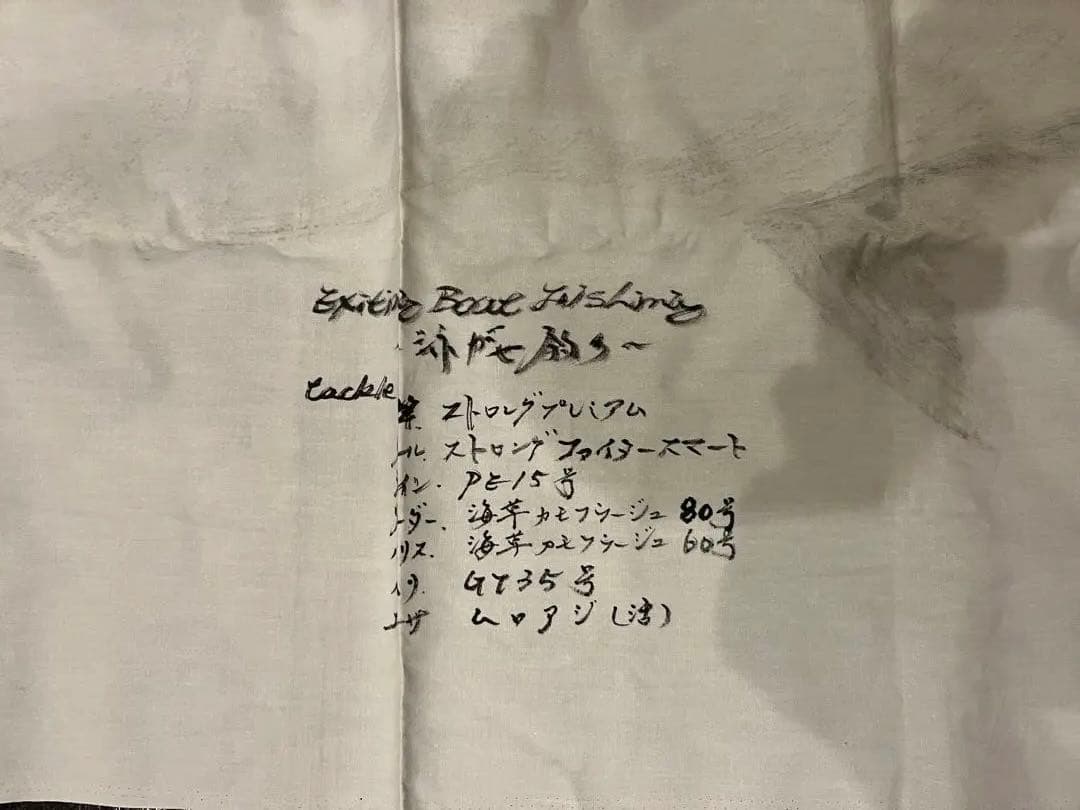 Exiting Boat Fishing
~泳がせ釣り~
tackle
竿. ストロングプレミアム
ール. ストロングファイタースマート
イン. PE15号
ーダー. 海草カモフラージュ 80号
ハリス. 海草カモフラージュ 60号
ハリ. GT35号
エサ ムロアジ(活)